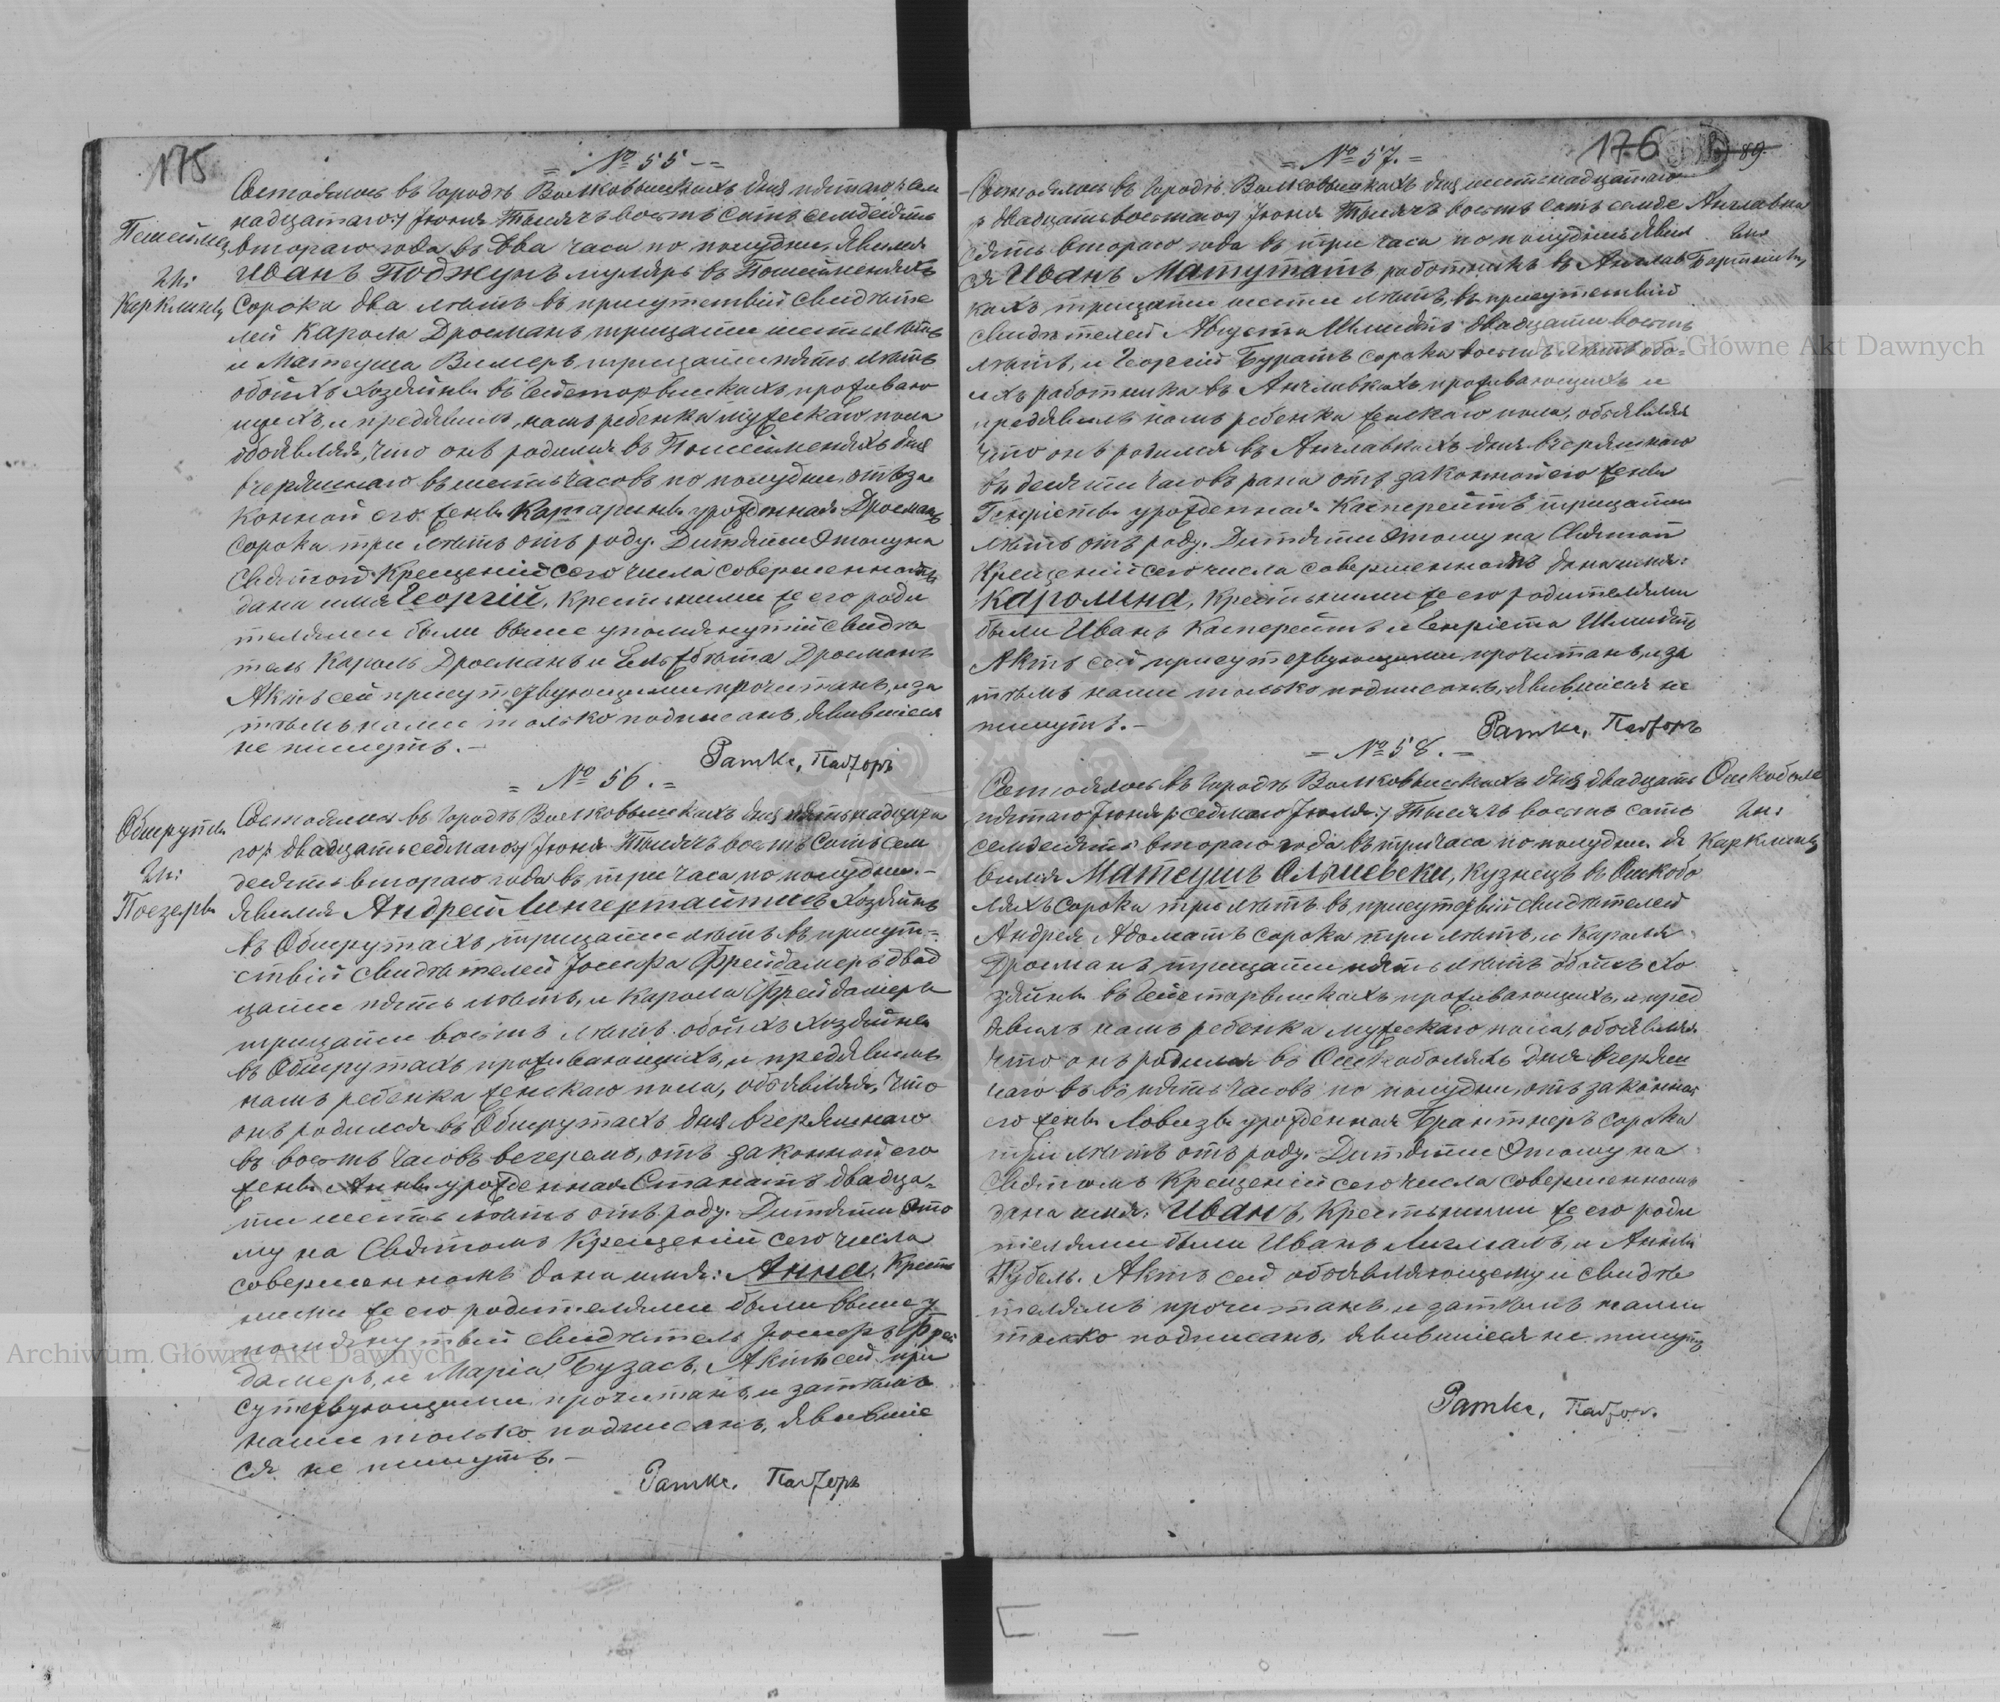 175
№ 55
Состоялось въ городѣ Волковышкахъ дня пятаго/сем
надцатаго/ Іюня Тысяча восемь сотъ семдесятъ
Пошейме втораго года въ два часа по полудни, явился
Гм: Иванъ Поджунъ муляръ въ Пошейменяхъ
сорока два лѣтъ въ присутствіи свидѣте
лей Кароля Дросманъ тридцати шесть лѣтъ
и Матеуша Вимеръ тридцати пять лѣтъ
обоихъ хозяйнъ въ Гейсторвишкахъ проживаю
щихъ, и предявилъ намъ ребенка мужескаго пола
объявляя, что онъ родился въ Пошейменяхъ дня
вчерашнаго въ шесть часовъ по полудни, отъ за
конной его жены Катарины урожденная Дросманъ
сорока три лѣтъ отъ роду. Дитяти этому на
Святомъ Крещеніи сего числа совершенномъ
дано имя Георгій, Крестными же его роди
телями были выше упомянутій свидѣ
тель Кароль Дросманъ и Елжбѣта Дросманъ
Актъ сей присутствующими прочитанъ, и за
тѣмъ нами только подписанъ, явившіеся
не пишутъ.
Ратке, Пасторъ
№ 56.
Состоялось въ городѣ Волковышкахъ дня пятьнадцата
го/ двадцать седмаго/ Іюня Тысяча восемь сотъ сем
Гм: десять втораго года въ три часа по полудни.
явился Андрей Лингертайтисъ хозяйнъ
въ Обшрутахъ, тридцати лѣтъ въ присут
ствіи свидѣтелей Іосифа Фрейдамеръ двад
цати пять лѣтъ, и Кароля Фрейдамеръ
тридцати восемь лѣтъ обоихъ хозяйнъ
въ Обшрутахъ проживающихъ, и предявилъ
намъ ребенка женскаго пола, объявляя, что
онъ родился въ Обшрутахъ дня вчерашнаго
въ восемь часовъ вечеромъ, отъ законной его
жены Анны урожденная Станатъ двадца
ти шесть лѣтъ отъ роду. Дитяти это
му на Святомъ Крещеніи сего числа
совершенномъ дано имя: Анна, Крест
ными же его родителями были выше у
помянутый свидѣтель Іосифъ Фрей
дамеръ, и Марія Бузасъ. Актъ сей при
сутствующими прочитанъ, и затѣмъ
нами только подписанъ, явившіе
ся не пишутъ.
Ратке. Пасторъ
176
89.
№ 57.
Состоялось въ городѣ Волковышкахъ дня шестнадцатаго
/двадцать восьмаго/ Іюня Тысяча восемь сотъ семде Англавка
сятъ втораго года въ три часа по полудни явил Гм:
ся Иванъ Матутатъ работникъ въ Англав
кахъ тридцати шести лѣтъ, въ присутствіи
свидѣтелей Августа Шмидтъ двадцати восемь
лѣтъ, и Георгій Буратъ сорока восемь лѣтъ обо
ихъ работника въ Англавкахъ проживающихъ и
предявилъ намъ ребенка женскаго пола, объявляя
что онъ родился въ Англавкахъ дня вчерашнаго
въ десяти часовъ рана отъ законной его жены
Генріеты урожденная Касперейтъ тридцати
лѣтъ отъ роду. Дитяти этому на Святомъ
Крещеніи сего числа совершенномъ дано имя:
Каролина, Крестными же его родителями
были Иванъ Касперейтъ и Генріета Шмидтъ
Актъ сей присутствующими прочитанъ, и за
тѣмъ нами только подписанъ, явившіеся не
пишутъ.
Ратке, Пасторъ
№ 58.
Состоялось въ городѣ Волковышкахъ дня двадцать Ошкоболе
пятаго Іюня /седмаго Іюля/ Тысяча восемь сотъ Гм:
семдесятъ втораго года въ три часа по полудни я
вился Матеушъ Ольшевски, кузнецъ въ Ошкобо
ляхъ сорока три лѣтъ въ присутствіи свидѣтелей
Андрея Адоматъ сорока три лѣтъ, и Кароля
Дросманъ тридцати пять лѣтъ обоихъ хо
зяйнъ въ Гейстарвишкахъ проживающихъ, и пред
явилъ намъ ребенка мужескаго пола, объявляя
что онъ родился въ Ошкоболяхъ дня вчераш
наго въ въ пять часовъ по полудни, отъ законной
его жены Ловизы урожденная Брантнеръ сорока
три лѣтъ отъ роду. Дитяти этому на
Святомъ Крещеніи сего числа совершенномъ
дано имя: Иванъ, Крестными же его роди
телями были Иванъ Лигмалъ, и Анна
Кубель. Актъ сей объявляющему и свидѣ
телямъ прочитанъ, и затѣмъ нами
только подписанъ, явившіеся не пишутъ
Ратке, Пастор.
Archiwum Główne Akt Dawnych
Archiwum Główne Akt Dawnych